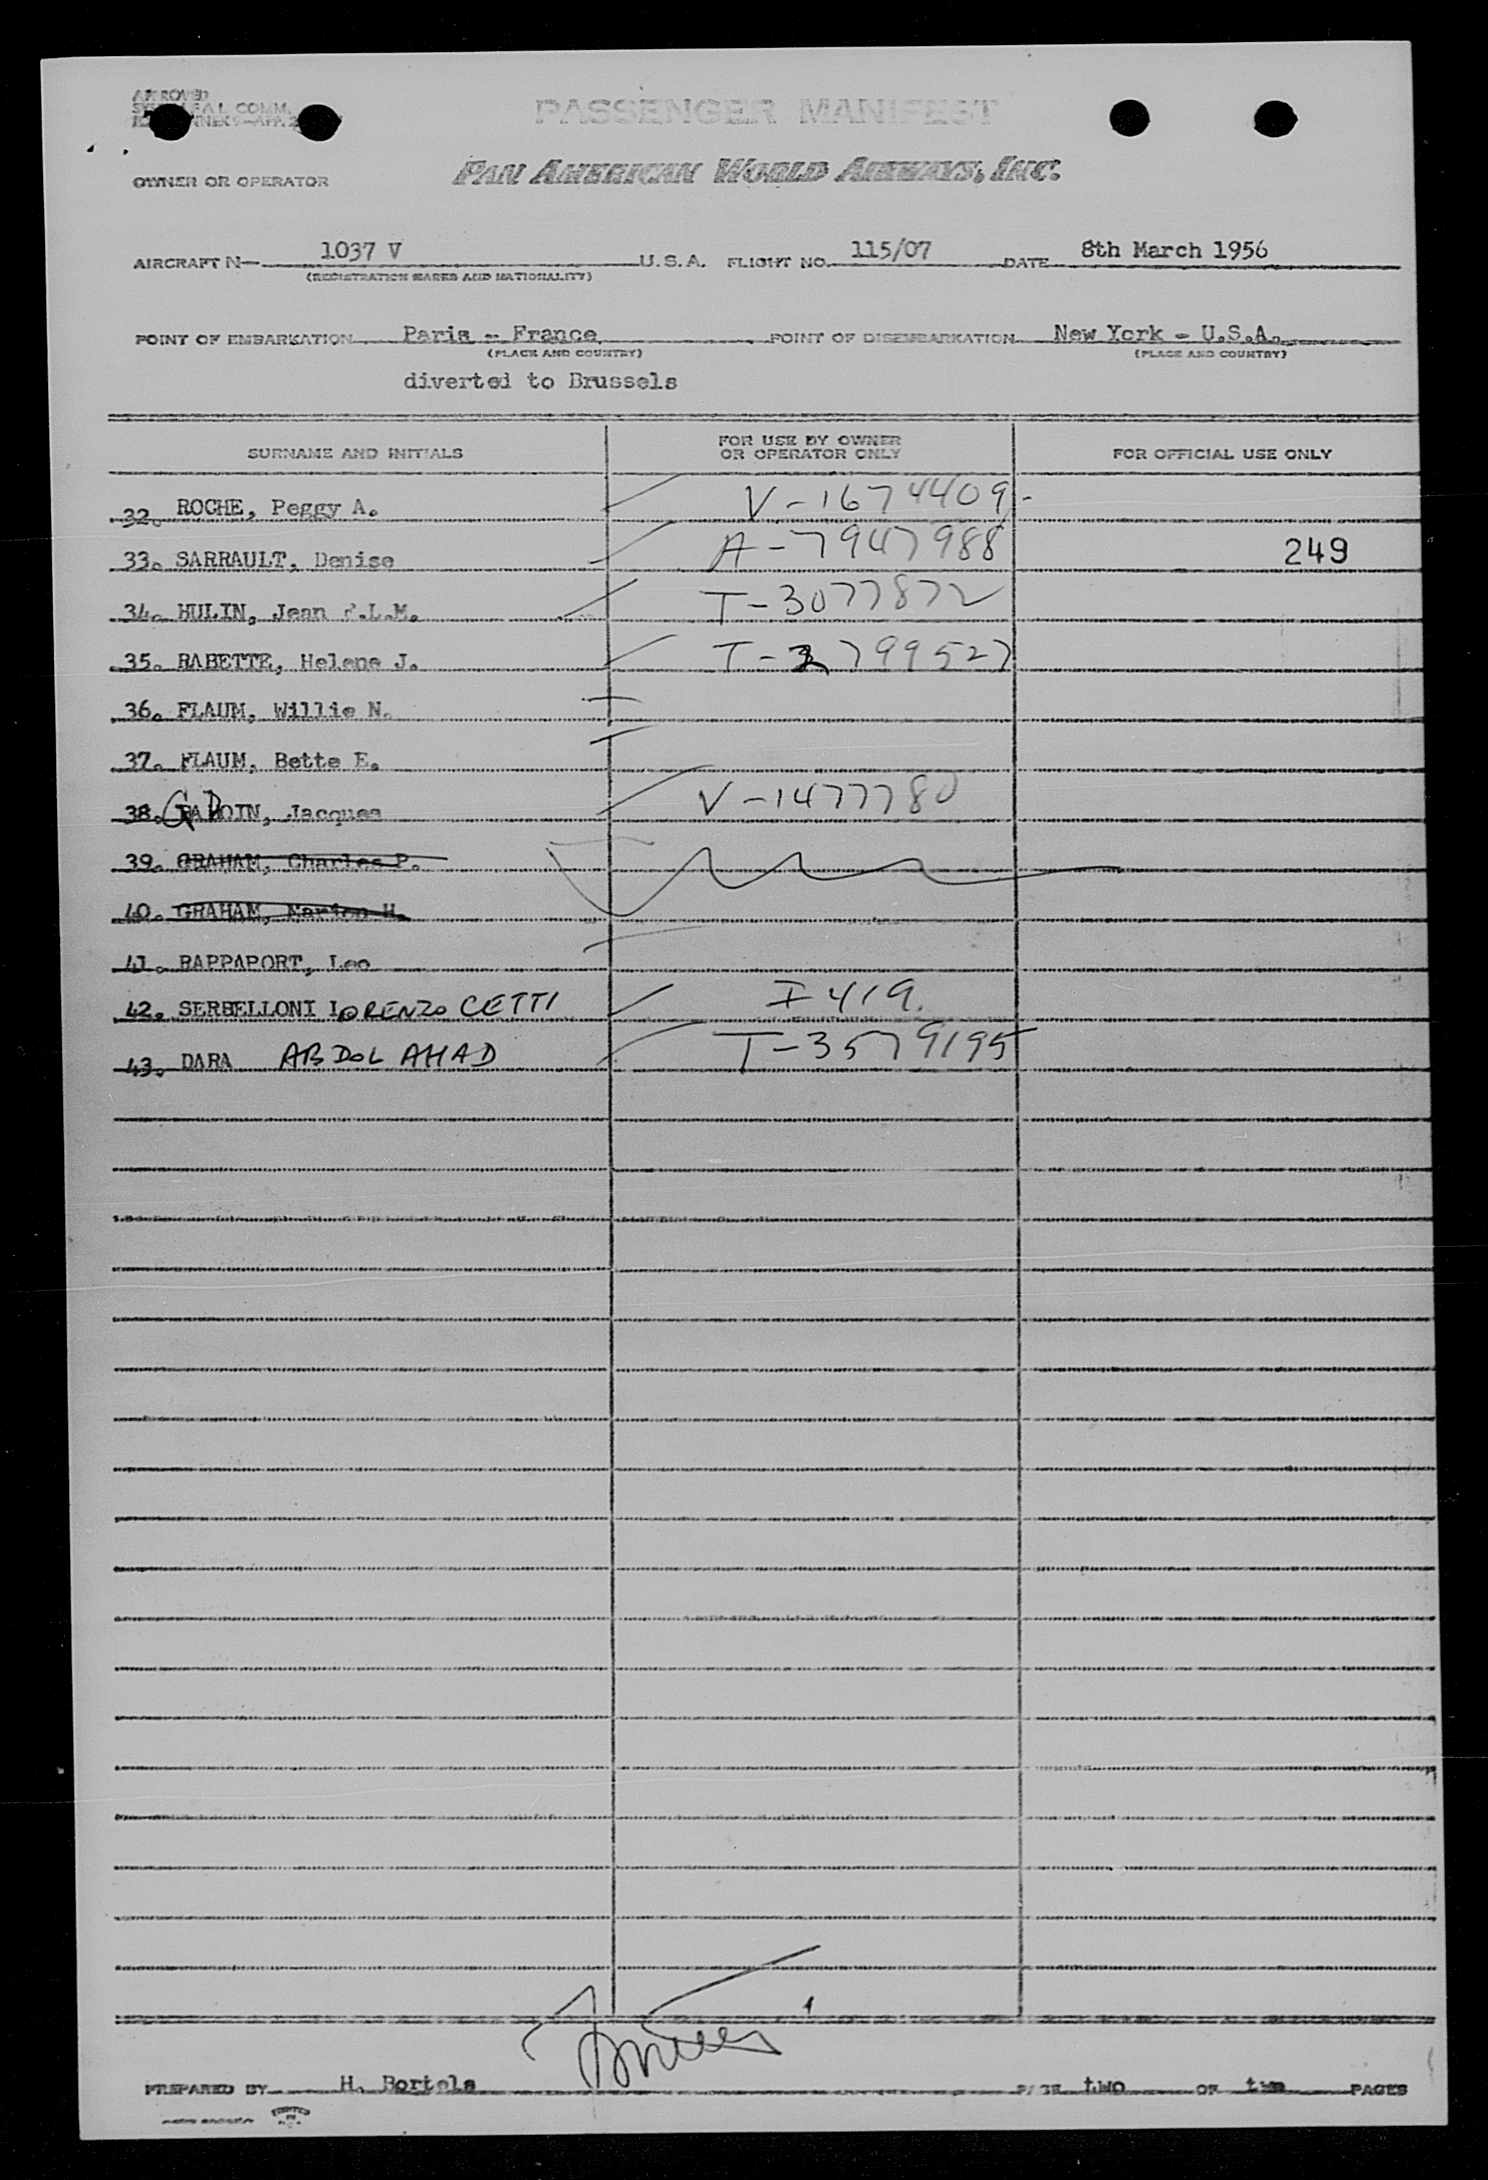 APPROVED
COMM.
PASSENGER MANIFEST
PAN AMERICAN WORLD AIRWAYS, INC.
OWNER OR OPERATOR
AIRCRAFT N— 1037 V U.S.A. FLIGHT NO. 115/07 DATE 8th March 1956
(REGISTRATION MARKS AND NATIONALITY)
POINT OF EMBARKATION Paris - France POINT OF DISEMBARKATION New York - U.S.A.
(PLACE AND COUNTRY) (PLACE AND COUNTRY)
diverted to Brussels
SURNAME AND INITIALS FOR USE BY OWNER OR OPERATOR ONLY FOR OFFICIAL USE ONLY
32. ROCHE, Peggy A. V-1674409
33. SARRAULT, Denise A-7947988 249
34. HULIN, Jean F.L.M. T-3077872
35. RABETTE, Helene J. T-3799527
36. FLAUM, Willie N.
37. FLAUM, Bette E.
38. GADOIN, Jacques V-1477780
39. GRAHAM, Charles P.
40. GRAHAM, Marion H.
41. RAPPAPORT, Leo
42. SERBELLONI LORENZO CETTI I 419.
43. DARA ABDOL AHAD T-3579195
PREPARED BY H. Bortels PAGE two OF two PAGES